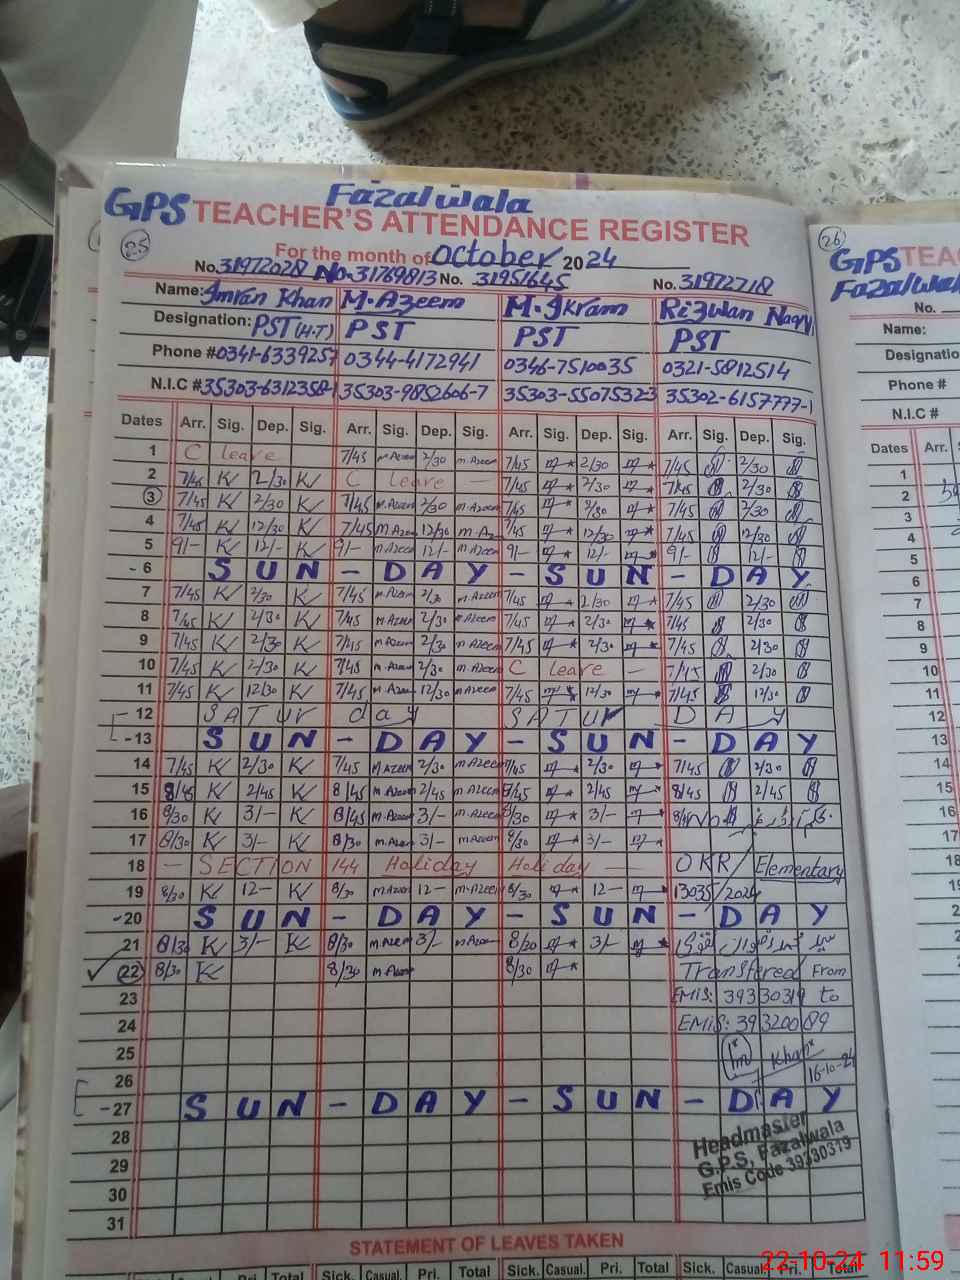 GPS Fazalwala
TEACHER'S ATTENDANCE REGISTER
25
For the month of October 2024
No. 31972028 No. 31769813 No. 31951645 No. 31972718
Name: Imran Khan M. Azeem M. Ikram Rizwan Naqvi
Designation: PST (H.T) PST PST PST
Phone # 0341-6339257 0344-4172941 0346-7510035 0321-5812514
N.I.C # 35303-6312358-1 35303-9852606-7 35303-5507532-3 35302-6157777-1
Dates Arr. Sig. Dep. Sig. Arr. Sig. Dep. Sig. Arr. Sig. Dep. Sig. Arr. Sig. Dep. Sig.
1 C leave 7/45 M.Azeem 2/30 M.Azeem 7/45 2/30 7/45 2/30
2 7/45 K 2/30 K C leave — 7/45 2/30 7/45 2/30
3 7/45 K 2/30 K 7/45 M.Azeem 2/30 M.Azeem 7/45 2/30 7/45 2/30
4 7/45 K 12/30 K 7/45 M.Azeem 12/30 M.A 7/45 12/30 7/45 12/30
5 9/- K 12/- K 9/- M.Azeem 12/- M.Azeem 9/- 12/- 9/- 12/-
-6 SUN - DAY - SUN - DAY
7 7/45 K 2/30 K 7/45 M.Azeem 2/30 M.Azeem 7/45 2/30 7/45 2/30
8 7/45 K 2/30 K 7/45 M.Azeem 2/30 M.Azeem 7/45 2/30 7/45 2/30
9 7/45 K 2/30 K 7/45 M.Azeem 2/30 M.Azeem 7/45 2/30 7/45 2/30
10 7/45 K 2/30 K 7/45 M.Azeem 2/30 M.Azeem C leave — 7/45 2/30
11 7/45 K 12/30 K 7/45 M.Azeem 12/30 M.Azeem 7/45 12/30 7/45 12/30
12 SATUr day SATUr DAy
-13 SUN - DAY - SUN - DAY
14 7/45 K 2/30 K 7/45 M.Azeem 2/30 M.Azeem 7/45 2/30 7/45 2/30
15 8/45 K 2/45 K 8/45 M.Azeem 2/45 M.Azeem 8/45 2/45 8/45 2/45
16 8/30 K 3/- K 8/45 M.Azeem 3/- M.Azeem 8/30 3/-
17 8/30 K 3/- K 8/30 M.Azeem 3/- M.Azeem 8/30 3/-
18 — SECTION 144 Holiday Holiday — OKR Elementary
19 8/30 K 12- K 8/30 M.Azeem 12- M.Azeem 8/30 12- 13035/2024
-20 SUN - DAY - SUN - DAY
21 8/30 K 3/- K 8/30 M.Azeem 3/- M.Azeem 8/30 3/- سید رضوان نقوی
22 8/30 K 8/30 M.Azeem 8/30 Transfered From
23 EMIS: 39330319 to
24 EMIS: 39320089
25 Khan
26 16-10-24
-27 SUN - DAY - SUN - DAY
28 Headmaster
29 G.P.S, Fazalwala
30 Emis Code 39330319
31
STATEMENT OF LEAVES TAKEN
Sick. Casual. Pri. Total Sick. Casual. Pri. Total Sick. Casual. Pri. Total Sick. Casual. Pri. Total
26
GPS TEA
Fazalwal
No.
Name:
Designatio
Phone #
N.I.C #
Dates Arr.
1
2
3
4
5
6
7
8
9
10
11
12
13
14
15
16
17
18
19
22-10-24 11:59